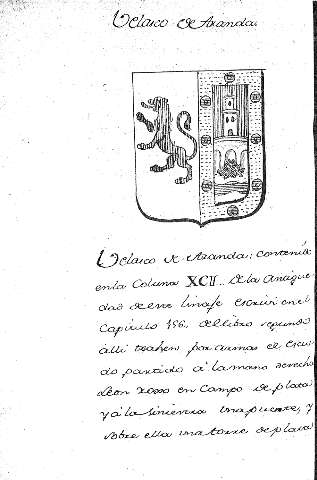 Velasco de Aranda.
Velasco de Aranda; contenido
en la Coluna XCII. De la Antigue
dad de este linaje escrivi en el
Capitulo 196. del libro segundo
alli trahen por armas el Escu
do partido à la mano derecha
Leon roxo en Campo de plata
y à la siniestra una puente, y
sobre ella una torre de plata